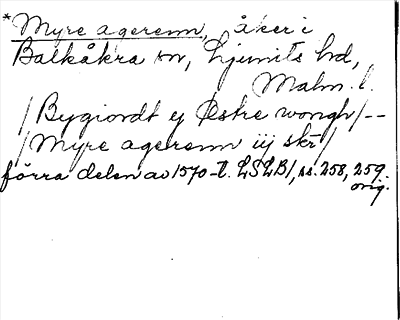 *Myre agerenn, åker i
Balkåkra sn, Ljunits hd,
Malm. l.
/Bygiordt ej Østre wongh/--
/Myre agerenn iij skr/
förra delen av 1570-t. LSLB/, ss. 258, 259.
orig.